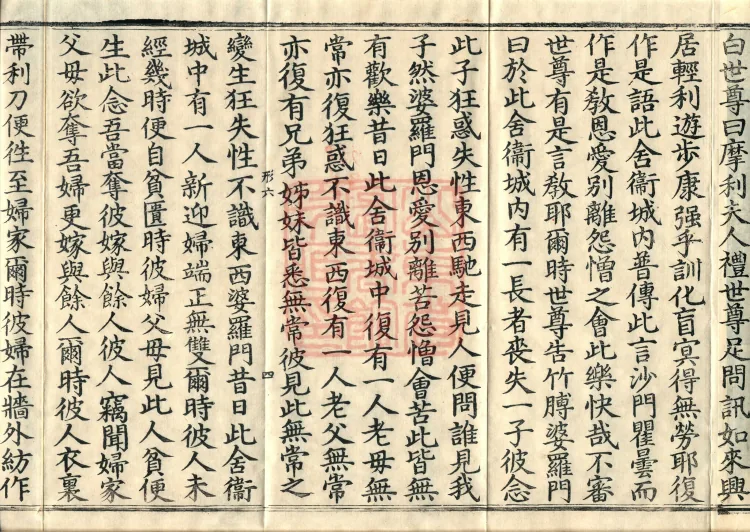 白世尊曰摩利夫人禮世尊足問訊如來興
居輕利遊步康强乎訓化盲冥得無勞耶復
作是語此舍衞城內普傳此言沙門瞿曇而
作是敎恩愛別離怨憎之會此樂快哉不審
世尊有是言敎耶爾時世尊告竹膊婆羅門
曰於此舍衞城內有一長者喪失一子彼念
此子狂惑失性東西馳走見人便問誰見我
子然婆羅門恩愛別離苦怨憎會苦此皆無
有歡樂昔日此舍衞城中復有一人老母無
常亦復狂惑不識東西復有一人老父無常
亦復有兄弟姊妹皆悉無常彼見此無常之
形六 四
變生狂失性不識東西婆羅門昔日此舍衞
城中有一人新迎婦端正無雙爾時彼人未
經幾時便自貧匱時彼婦父母見此人貧便
生此念吾當奪彼嫁與餘人彼人竊聞婦家
父母欲奪吾婦更嫁與餘人爾時彼人衣裏
帶利刀便往至婦家爾時彼婦在牆外紡作